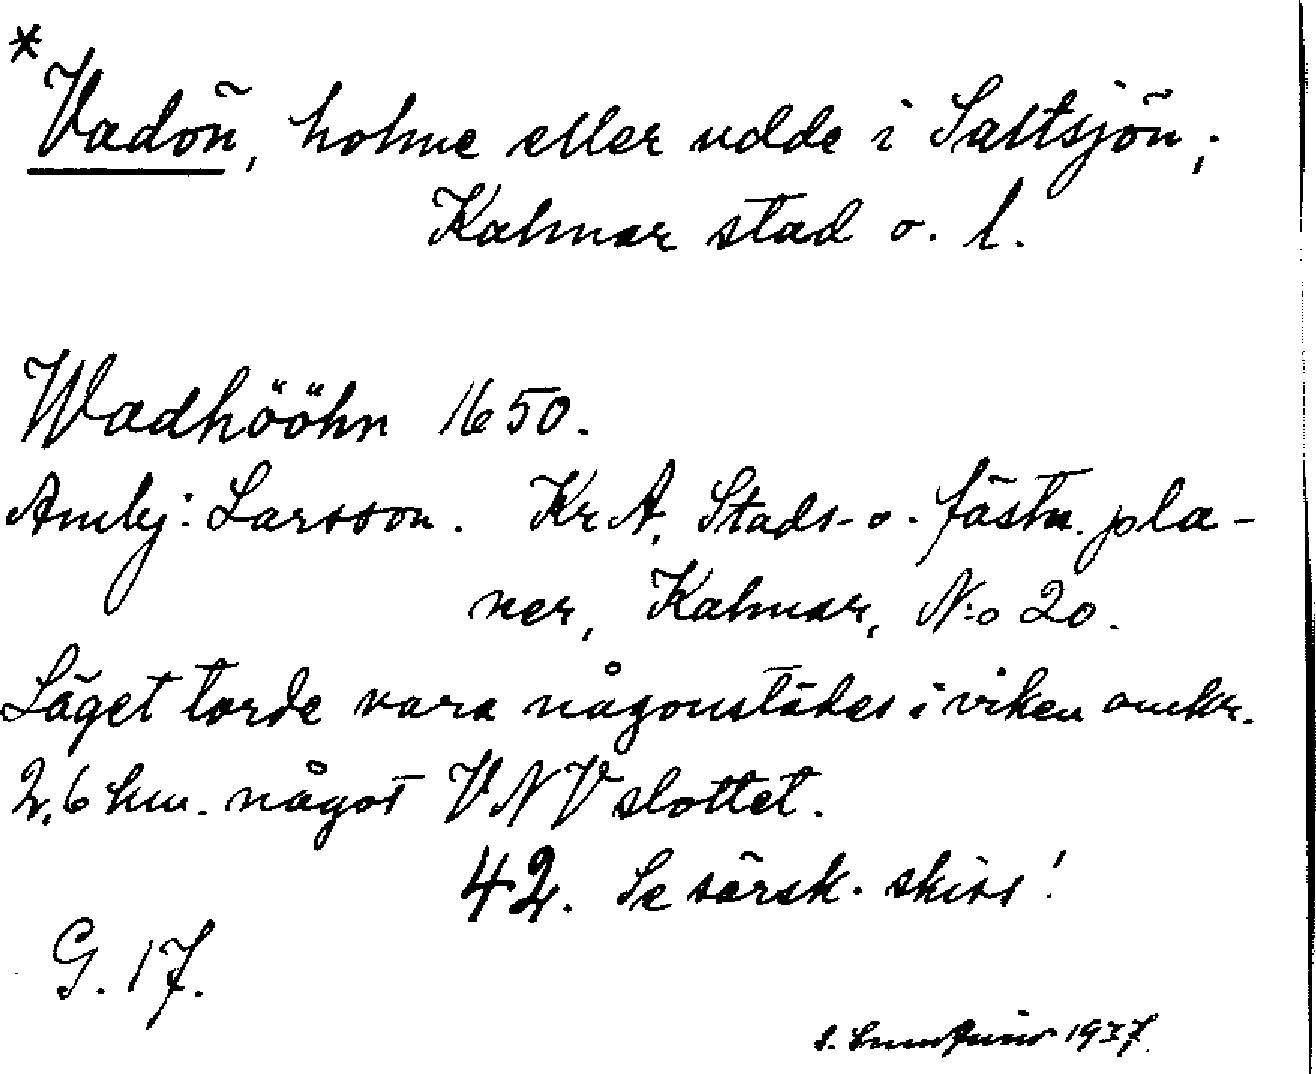 *
Vadön, holme eller udde i Saltsjön,
Kalmar stad o. l.
Wadhööhn 1650.
Ambj: Larsson. KrA, Stads- o. fästn. pla-
ner, Kalmar, N:o 20.
Läget torde vara någonstädes i viken omkr.
2,6 km. något VNV slottet.
42. Se särsk. skiss!
G. 17.
1937.